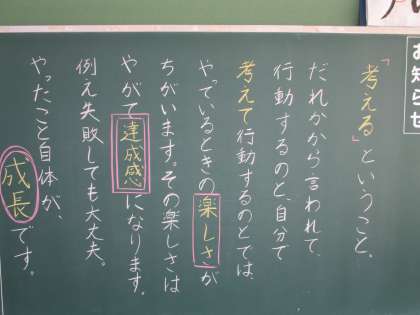 お知らせ
「考える」ということ、
だれかから言われて、
行動するのと、自分で
考えて行動するのとでは、
やっているときの楽しさが
ちがいます。その楽しさは
やがて達成感になります。
例え失敗しても大丈夫。
やったこと自体が、
成長です。